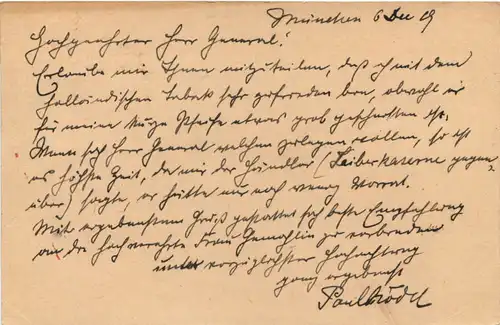 München 6 Dec 19
Hochgeehrter Herr General!
Erlaube mir Ihnen mitzuteilen, daß ich mit dem
Holländischen Tabak sehr zufrieden bin, obwohl er
für meine kurze Pfeife etwas grob geschnitten ist.
Wenn sich Herr General welchen zulegen wollen, so ist
es höchste Zeit, da mir der Händler (Leiberkaserne gegen=
über) sagte, er hätte nur noch wenig Vorrat.
Mit ergebenstem Gruß gestattet sich beste Empfehlung
an die hochverehrte Frau Gemahlin zu verbinden
unter vorzüglichster Hochachtung
ganz ergebenst
Paul Rödel